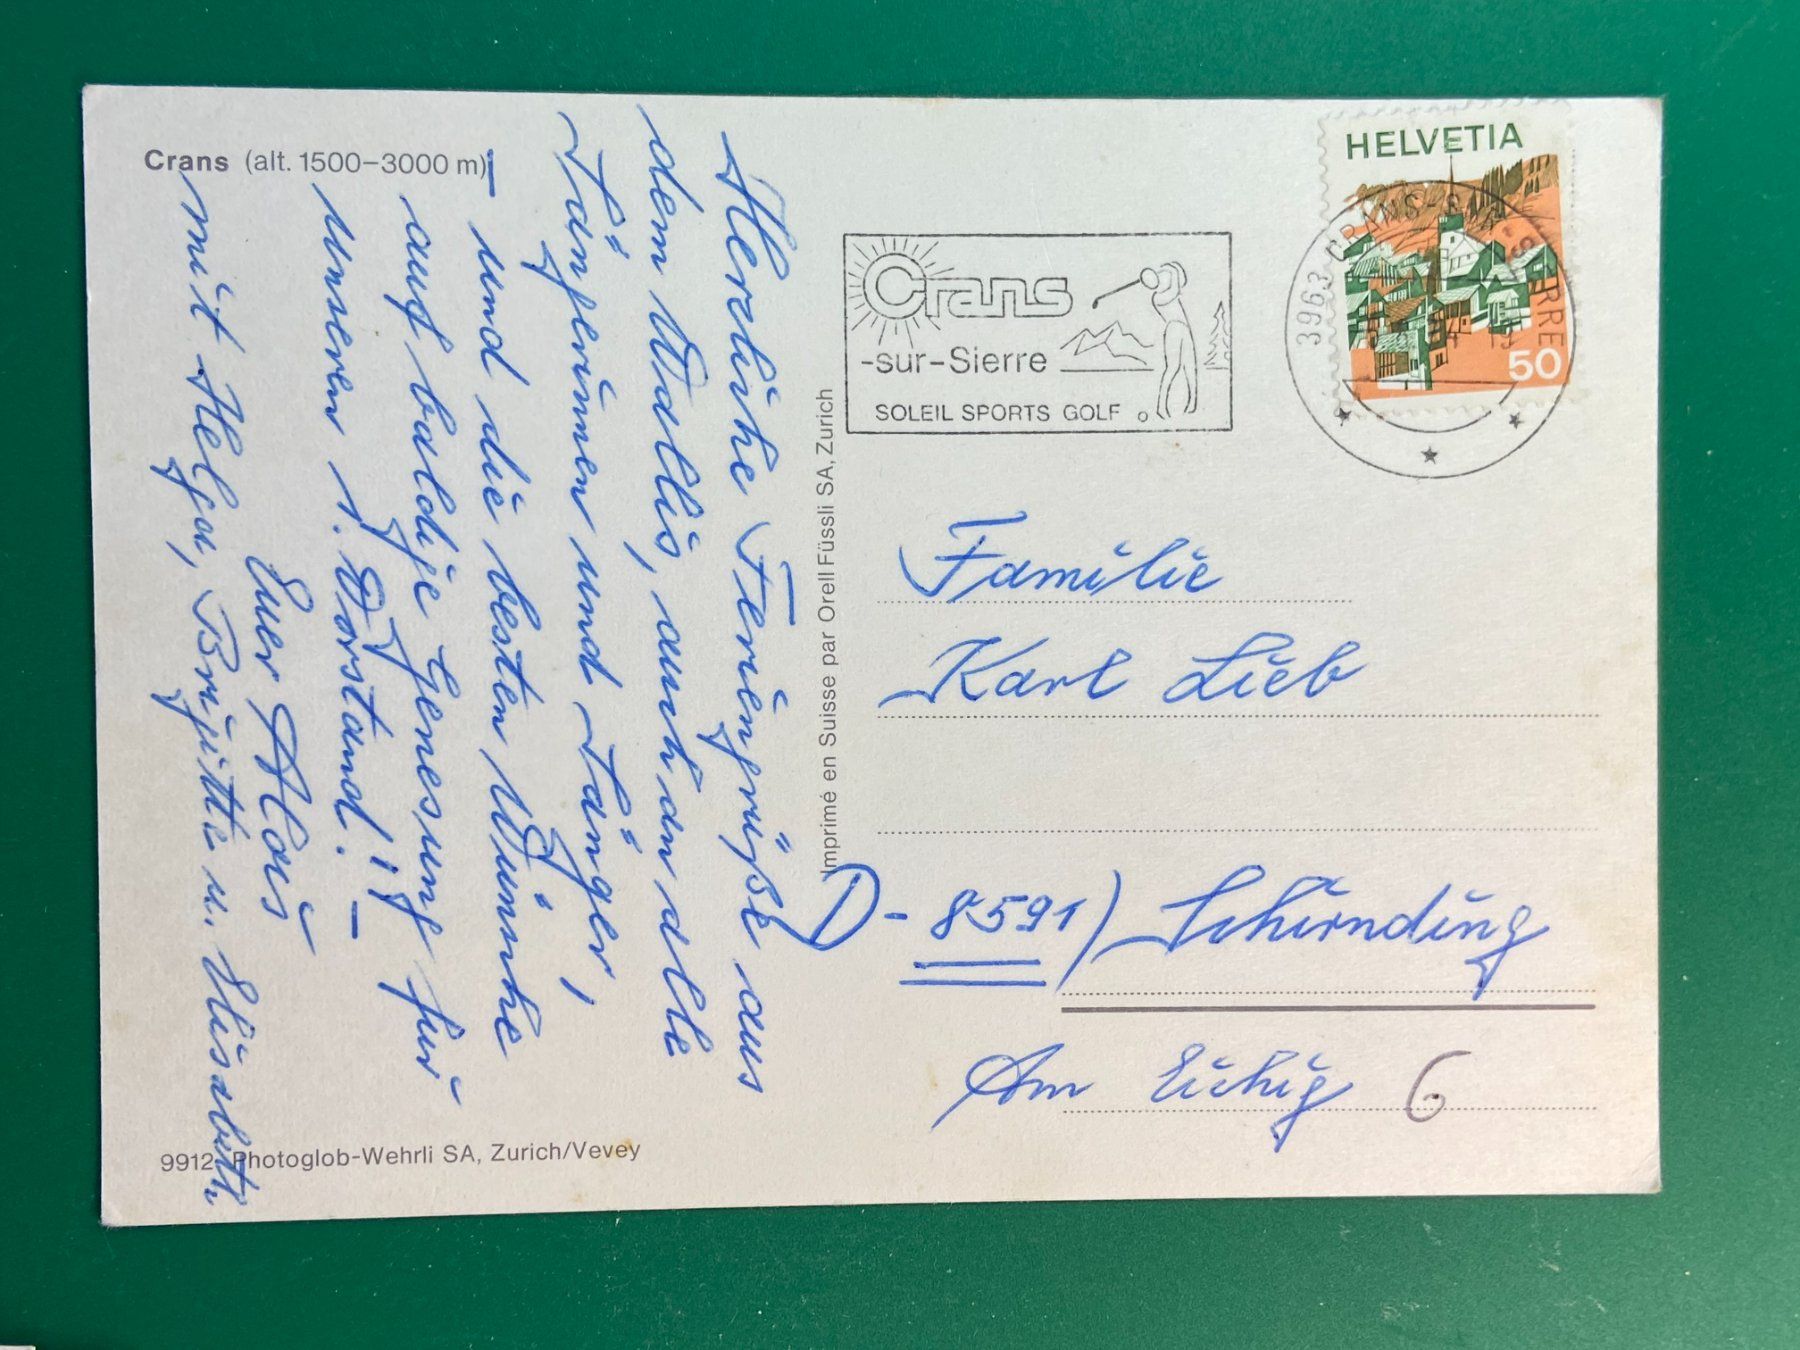 Crans (alt. 1500–3000 m)
Herzliche Feriengrüße aus
dem Wallis, auch an alle
Sängerinnen und Sänger,
- und die besten Wünsche
auf baldige Genesung für
unseren 1. Vorstand!! -
Euer Alois
mit Helga, Brigitte u. Elisabeth
9912 Photoglob-Wehrli SA, Zurich/Vevey
Imprimé en Suisse par Orell Füssli SA, Zurich
Crans
-sur-Sierre
SOLEIL SPORTS GOLF
HELVETIA
50
3963 CRANS-SUR-SIERRE
Familie
Karl Lieb
D-8591) Schirnding
Am Eichig 6